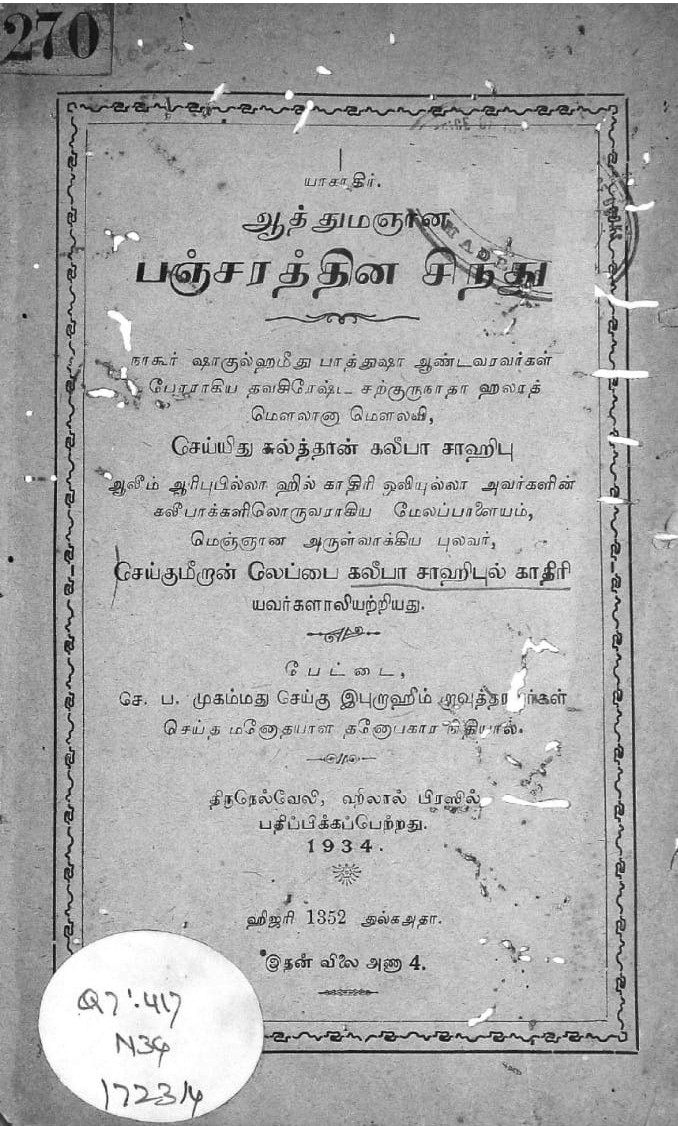 270
யாசாதிர்.
ஆத்துமஞான
பஞ்சரத்தின சிந்து
நாகூர் ஷாகுல்ஹமீது பாத்துஷா ஆண்டவரவர்கள்
பேரராகிய தவசிரேஷ்ட சற்குருநாதா ஹலரத்
மௌலானா மௌலவி,
செய்யிது சுல்த்தான் கலீபா சாஹிபு
ஆலீம் ஆரிபுபில்லா ஹில் காதிரி ஒலியுல்லா அவர்களின்
கலீபாக்களிலொருவராகிய மேலப்பாளையம்,
மெஞ்ஞான அருள்வாக்கிய புலவர்,
செய்குமீறான் லேப்பை கலீபா சாஹிபுல் காதிரி
யவர்களாலியற்றியது.
பேட்டை,
சே. ப. முகம்மது செய்கு இபுறாஹீம்
செய்த மனோதயாள தனோபகார நிதியால்.
திருநெல்வேலி, ஹிலால் பிரஸில்
பதிப்பிக்கப்பெற்றது.
1934.
ஹிஜரி 1352 துல்கஅதா.
இதன் விலை அணா 4.
Q7:417
N34
172314